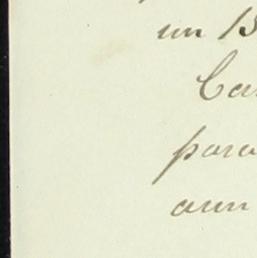 un 15
Ca
para
aun